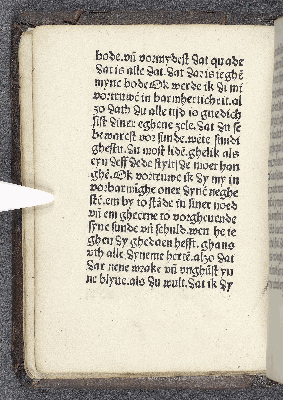 bode.vñ vormydest dat quade
dat is alle dat.dat dar is ieghē
myne bode Ok werde ik di mi
vortruwē in barmherticheit.al
zo dath du alle tijd so gnedich
sist diner eghene zele.dat du se
bewarest vor sunde.wēte sundi
ghestu.du most lidē.ghelik als
eyn deff de de stylt de moet han
ghē.Ok vortruwe ik dy my in
vorbarmighe oner dynē neghe
stē.em by to stāde in siner noed
vñ em gheerne to vorgheuende
syne sunde vñ schuld.wen he te
ghen dy ghedaen hefft.ghans
vth alle dyneme hertē.alzo dat
dar nene wrake vñ vnghūst yn
ne blyue.als du wult.dat ik dy